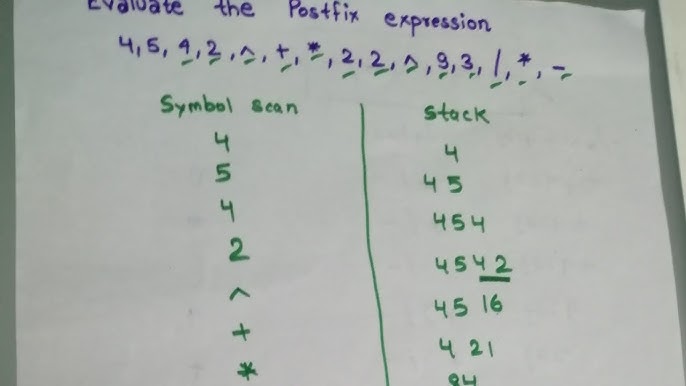 Evaluate the Postfix expression
4, 5, 4, 2, ^, +, *, 2, 2, ^, 9, 3, /, *, -
Symbol scan stack
4 4
5 4 5
4 4 5 4
2 4 5 4 2
^ 4 5 16
+ 4 21
* 84